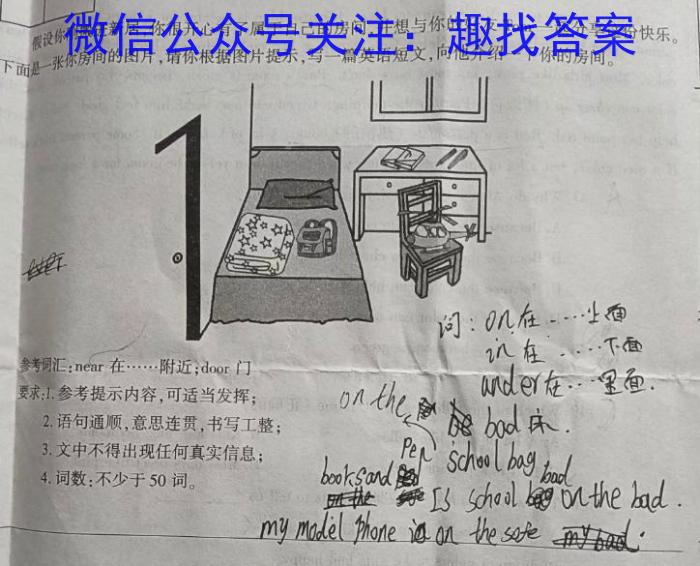 微信公众号关注：趣找答案
假设你
下面是一张你房间的图片,请你根据图片提示,写一篇英语短文,向他介绍一下你的房间。
参考词汇:near 在……附近;door 门
要求:1.参考提示内容,可适当发挥;
2.语句通顺,意思连贯,书写工整;
3.文中不得出现任何真实信息;
4.词数:不少于50词。
词: on在……上面
in在……下面
under在……里面.
on the
bad 床.
pen school bag
books and bad
Is school on the bad.
my model phone on the sofe my bad.